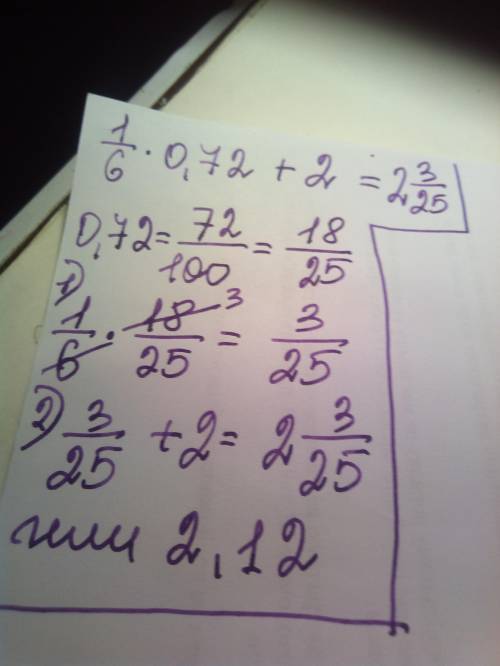 1/6 · 0,72 + 2 = 2 3/25
0,72 = 72/100 = 18/25
1) 1/6 · 18/25 3 = 3/25
2) 3/25 + 2 = 2 3/25
или 2,12